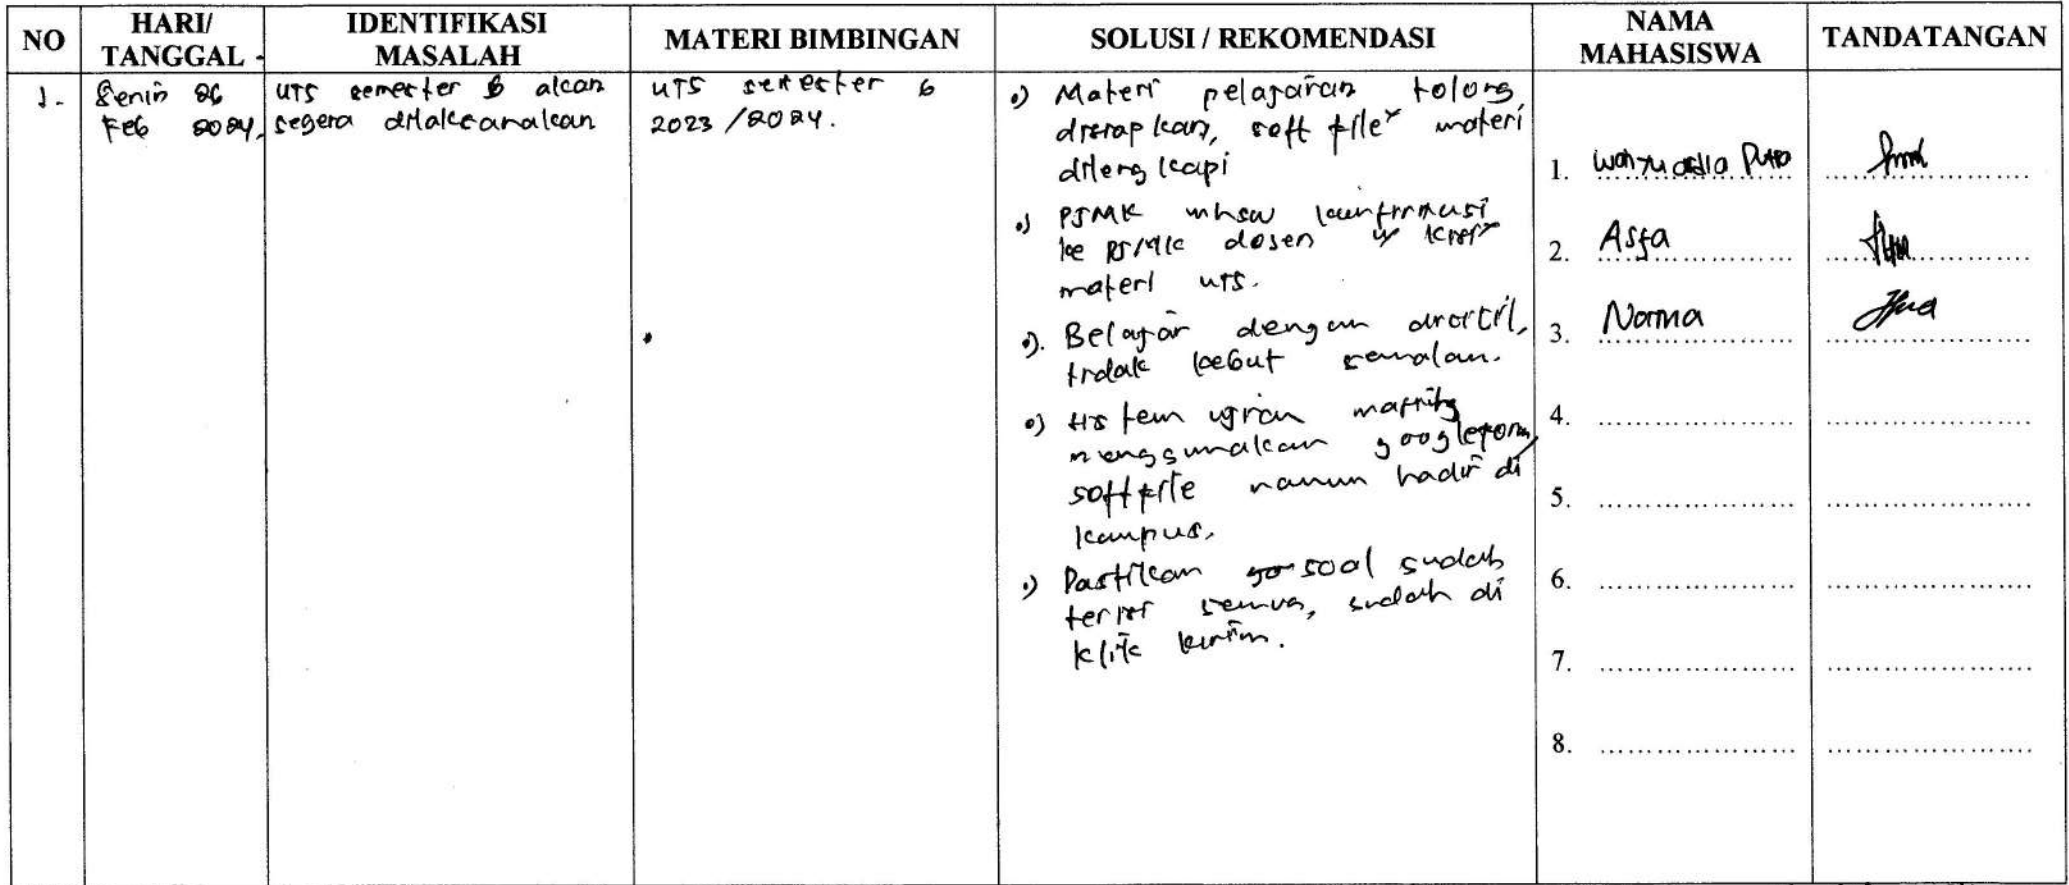 NO
HARI/
TANGGAL
IDENTIFIKASI
MASALAH
MATERI BIMBINGAN
SOLUSI / REKOMENDASI
NAMA
MAHASISWA
TANDATANGAN
1.
Senin 26
Feb 2024,
UTS semester 6 akan
segera dilaksanakan
UTS semester 6
2023/2024.
•) Materi pelajaran tolong
disiapkan, soft file² materi
dilengkapi
•) PJMK mhsw konfirmasi
ke PJMK dosen
materi UTS.
•). Belajar dengan dicicil,
tidak kebut semalam.
•) sistem ujian
menggunakan googleform,
softfile namun hadir di
kampus,
•) Pastikan soal sudah
terisi semua, sudah di
klik kirim.
1. Wahyu Putra
2. Asfa
3. Norma
4.
5.
6.
7.
8.